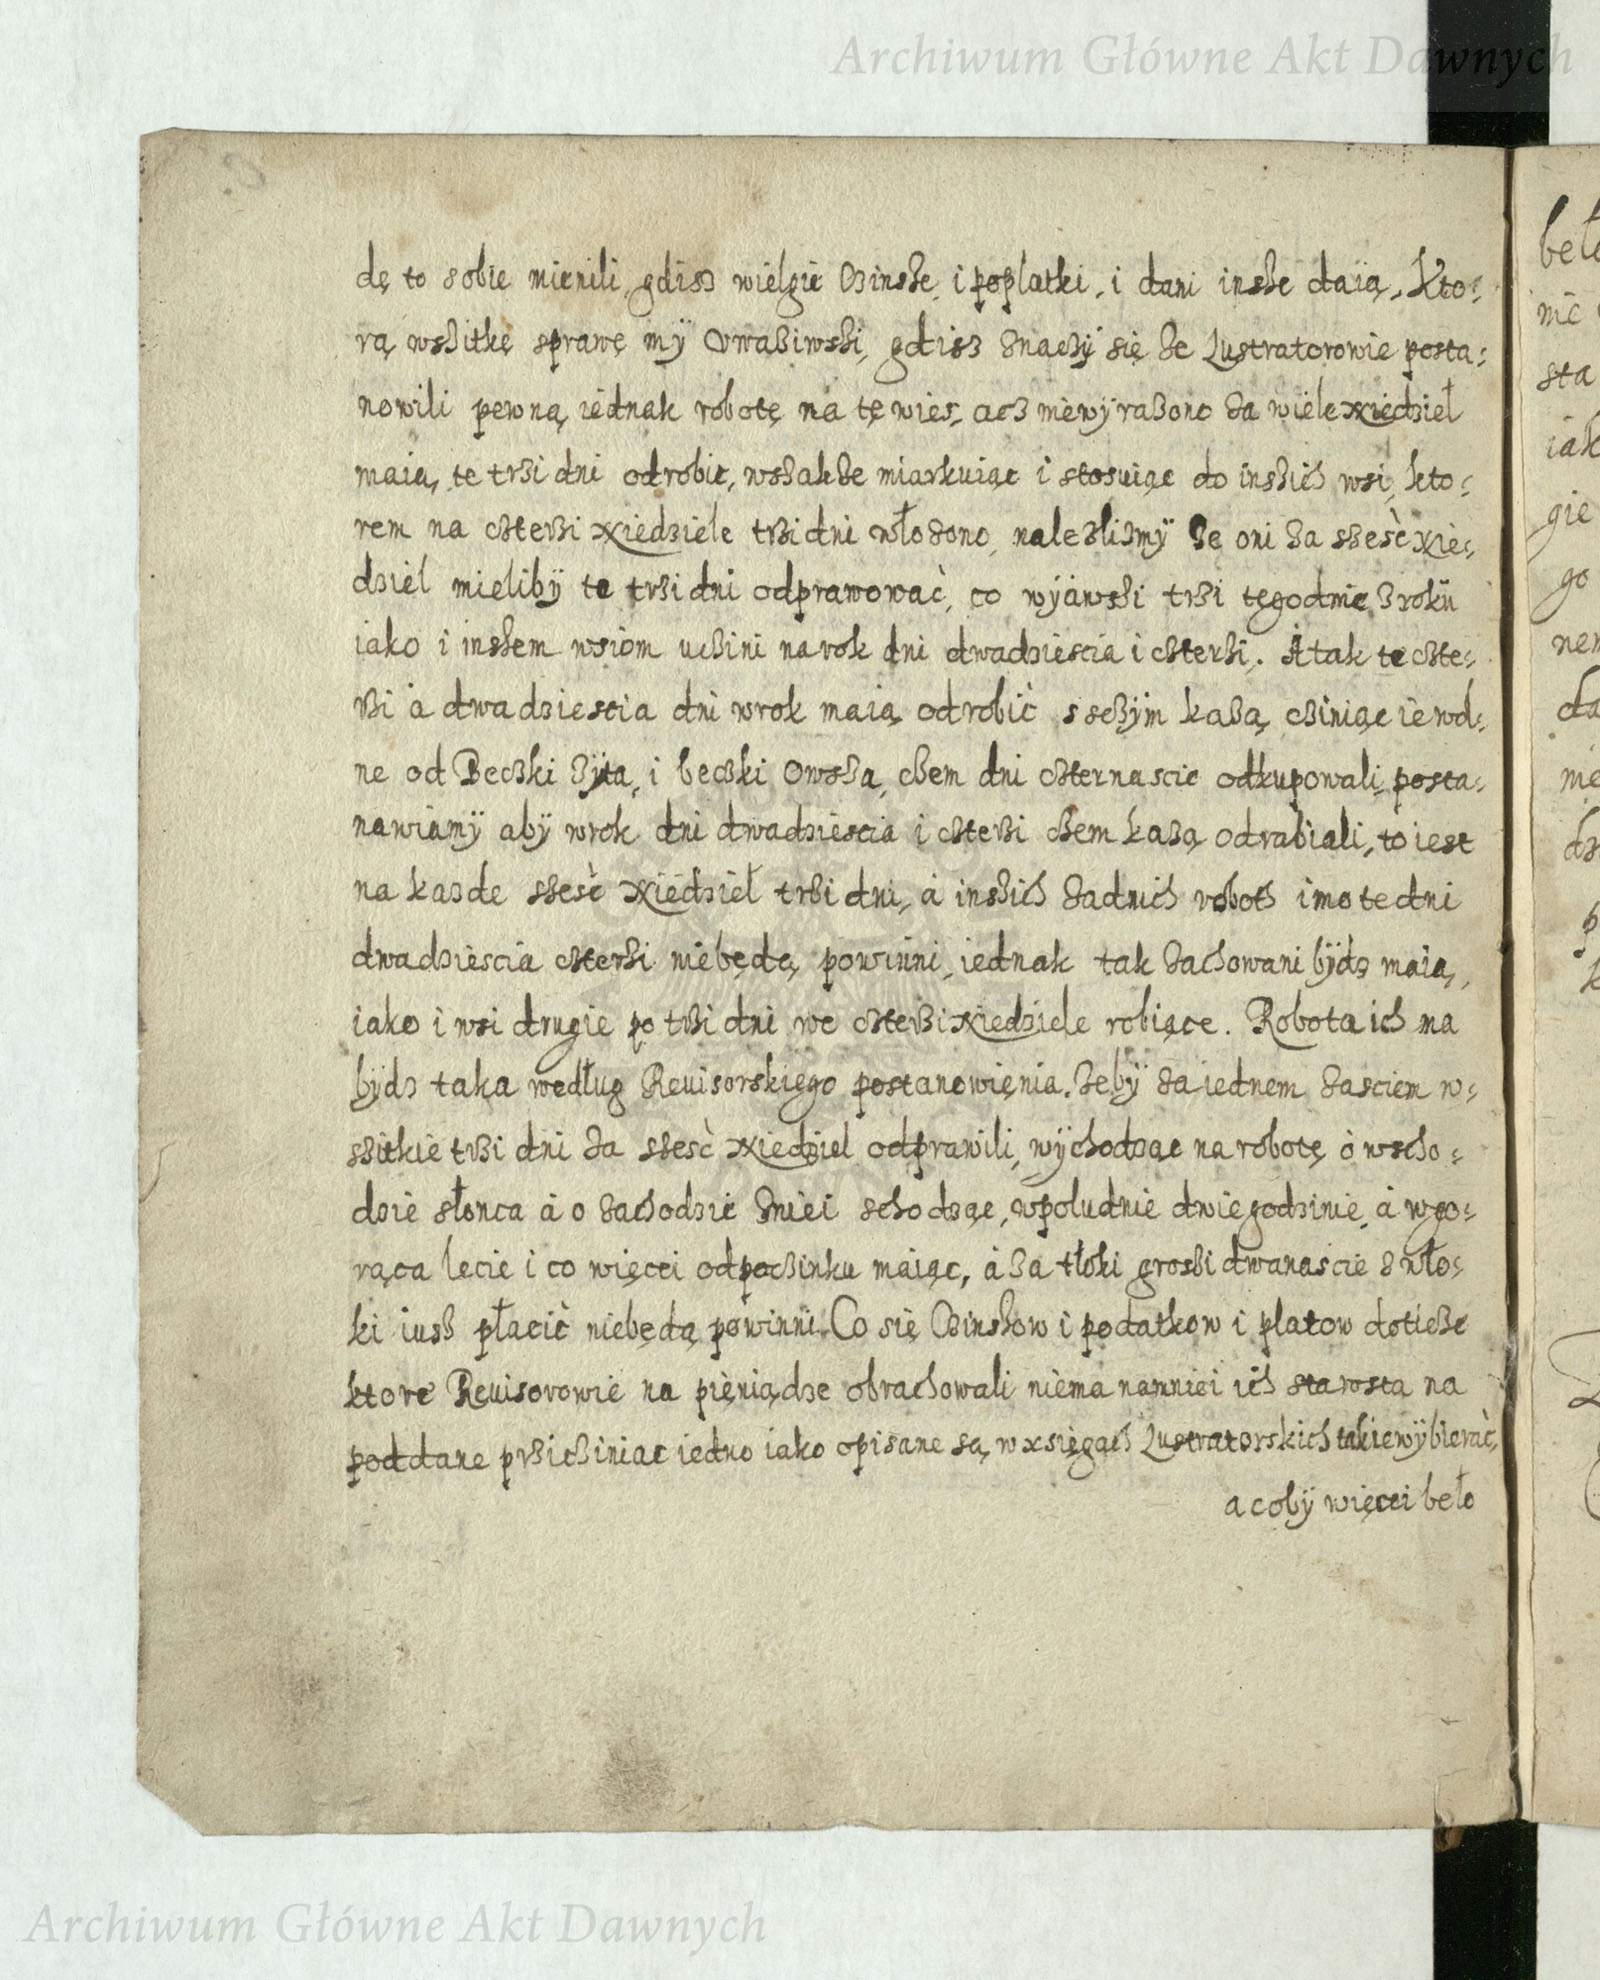 Archiwum Główne Akt Dawnych
dę to sobie mienili, gdisz wielgie czinsze, i poplatki, i dani insze daią. Kto=
rą wszitkę sprawę my uwaziwszi, gdisz znaczÿ się ze Lustratorowie posta=
nowili pewną iednak robotę na tę wies, acz niewÿrazono za wiele niedziel
maią te trzi dni odrobic, wszakze miarkuiąc i stosuiąc do inszich wsi, kto=
rem na czterzi niedziele trzi dni włozono, nalezlizmÿ ze oni za szesć nie=
dziel mielibÿ te trzi dni odprawować, co wÿiąwszi trzi tęgodnie z roku
iako i inszem wsiom uczini na rok dni dwadziescia i czterzi. A tak te czte=
rzi a dwadziescia dni w rok maią odrobić s sczÿm kazą, cziniąc ie wol=
ne od Beczki zÿta, i beczki owsza, czem dni czternascie odkupowali, posta=
nawiamÿ abÿ w rok dni dwadziescia i czterzi czem kazą odrabiali, to iest
na kazde szesć niedziel trzi dni, a inszich zadnich roboth imo te dni
dwadziescia czterzi niebędą powinni, iednak tak zachowani bÿdz maią,
iako i wsi drugie po trzi dni we czterzi niedziele robiące. Robota ich ma
bÿdz taka według Reuisorskięgo postanowięnia. zebÿ za iednem zasciem w=
szitkie trzi dni za szesć niedziel odprawili, wÿchodząc na robotę o wscho=
dzie słonca a o zachodzie zniei schodząc, w poludnie dwie godzinie, a w go=
rąca lecie i co więcei odpoczinku maiąc, a za tłoki groszi dwanascie z wło=
ki iusz płacić niebędą powinni. Co się czinszow i podatkow i platow doticze
ktore Reuisorowie na pięniądze obrachowali niema namniei ich starosta na
poddane prziciniac iedno iako opisane są w xsięgach Lustratorskich takie wÿbierać,
a cobÿ więcei beło
Archiwum Główne Akt Dawnych